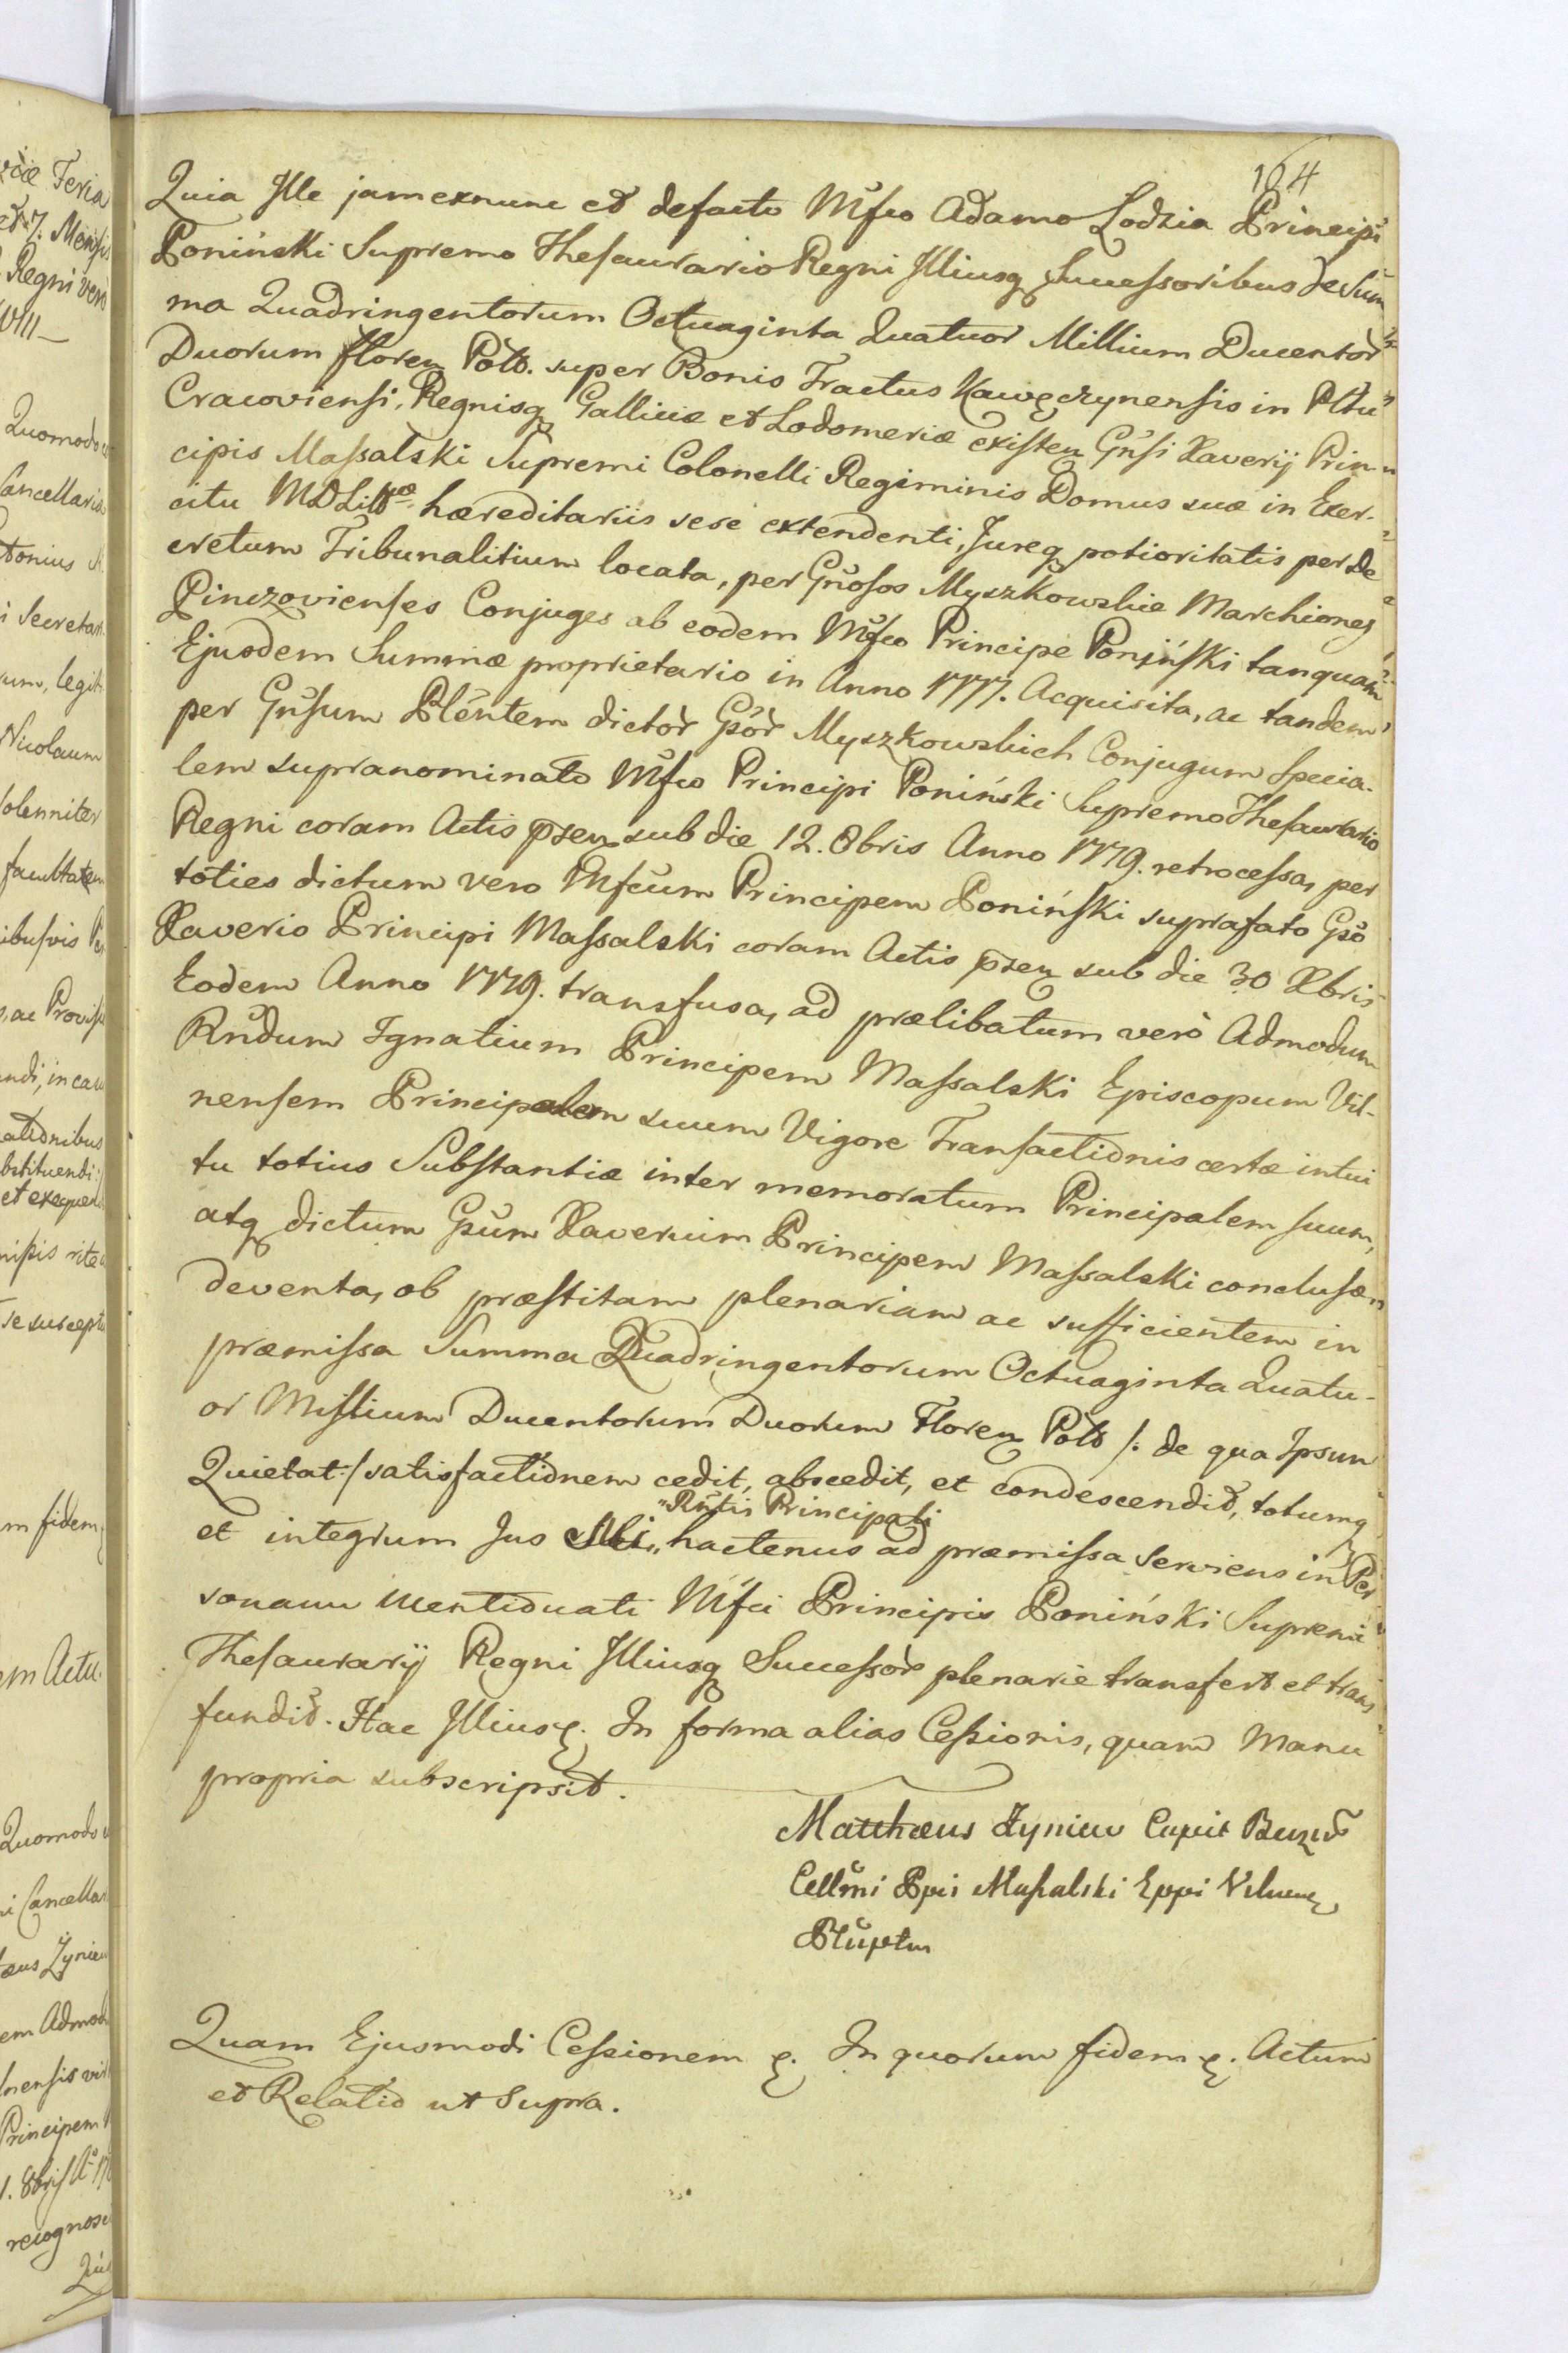 104
Quia Ille jamexnunc et defacto Mfco Adamo Lodzia Principi
Poniński Supremo Thesaurario Regni Illiusq Successoribus de Sum
ma Quadringentorum Octuaginta Quatuor Millium Ducentor
Duorum floren Polo. super Bonis Tractus Kawęczynensis in Pltu
Cracoviensi, Regnisq Galliciæ et Lodomeriæ existen Gnsi Xaverij Prin
cipis Massalski Supremi Colonelli Regiminis Domus suæ in Exer-
citu MDLittæ hæreditariis sese extendenti, Jureq potioritatis per De
cretum Tribunalitium locata, per Gnosos Myszkowskie Marchiones
Pinczovienses Conjuges ab eodem Mfco Principe Poniński tanquam
Ejusdem Summæ proprietario in Anno 1777. Acquisita, ac tandem
per Gnsum Plentem dictor Gsor Myszkowskich Conjugum specia-
lem supranominato Mfco Principi Poniński Supremo Thesaurario
Regni coram Actis psen sub die 12. 8bris Anno 1779. retrocessa, per
toties dictum vero Mfcum Principem Poniński suprafato Gso
Xaverio Principi Massalski coram Actis psen sub die 30 Xbris
Eodem Anno 1779. transfusa, ad prælibatum verò Admodum
Rndum Ignatium Principem Massalski Episcopum Vil-
nensem Principalem suum Vigore Transactionis certæ intui
tu totius Substantiæ inter memoratum Principalem suum,
atq dictum Gsum Xaverium Principem Massalski conclusæ
deventa, ob præstitam plenariam ac sufficientem in
præmissa Summa Quadringentorum Octuaginta Quatu-
or Millium Ducentorum Duorum Floren Polo /: de qua Ipsum
Quietat :/ satisfactionem cedit, abscedit, et condescendit, totumq
"Rntis Principali
et integrum Jus sibi " hactenus ad præmissa serviens in Per
sonam mentionati Mfci Principis Poniński Supremi
Thesaurarij Regni Illiusq Successor plenarie transfert et trans
fundit. Hac Illiusq. In forma alias Cessionis, quam Manu
propria subscripsit.
Matthæus Zyniew
Cellmi Ppis Massalski Eppi Vilnen
Quam Ejusmodi Cessionem q. In quorum fidem q. Actum
et Relatio ut Supra.